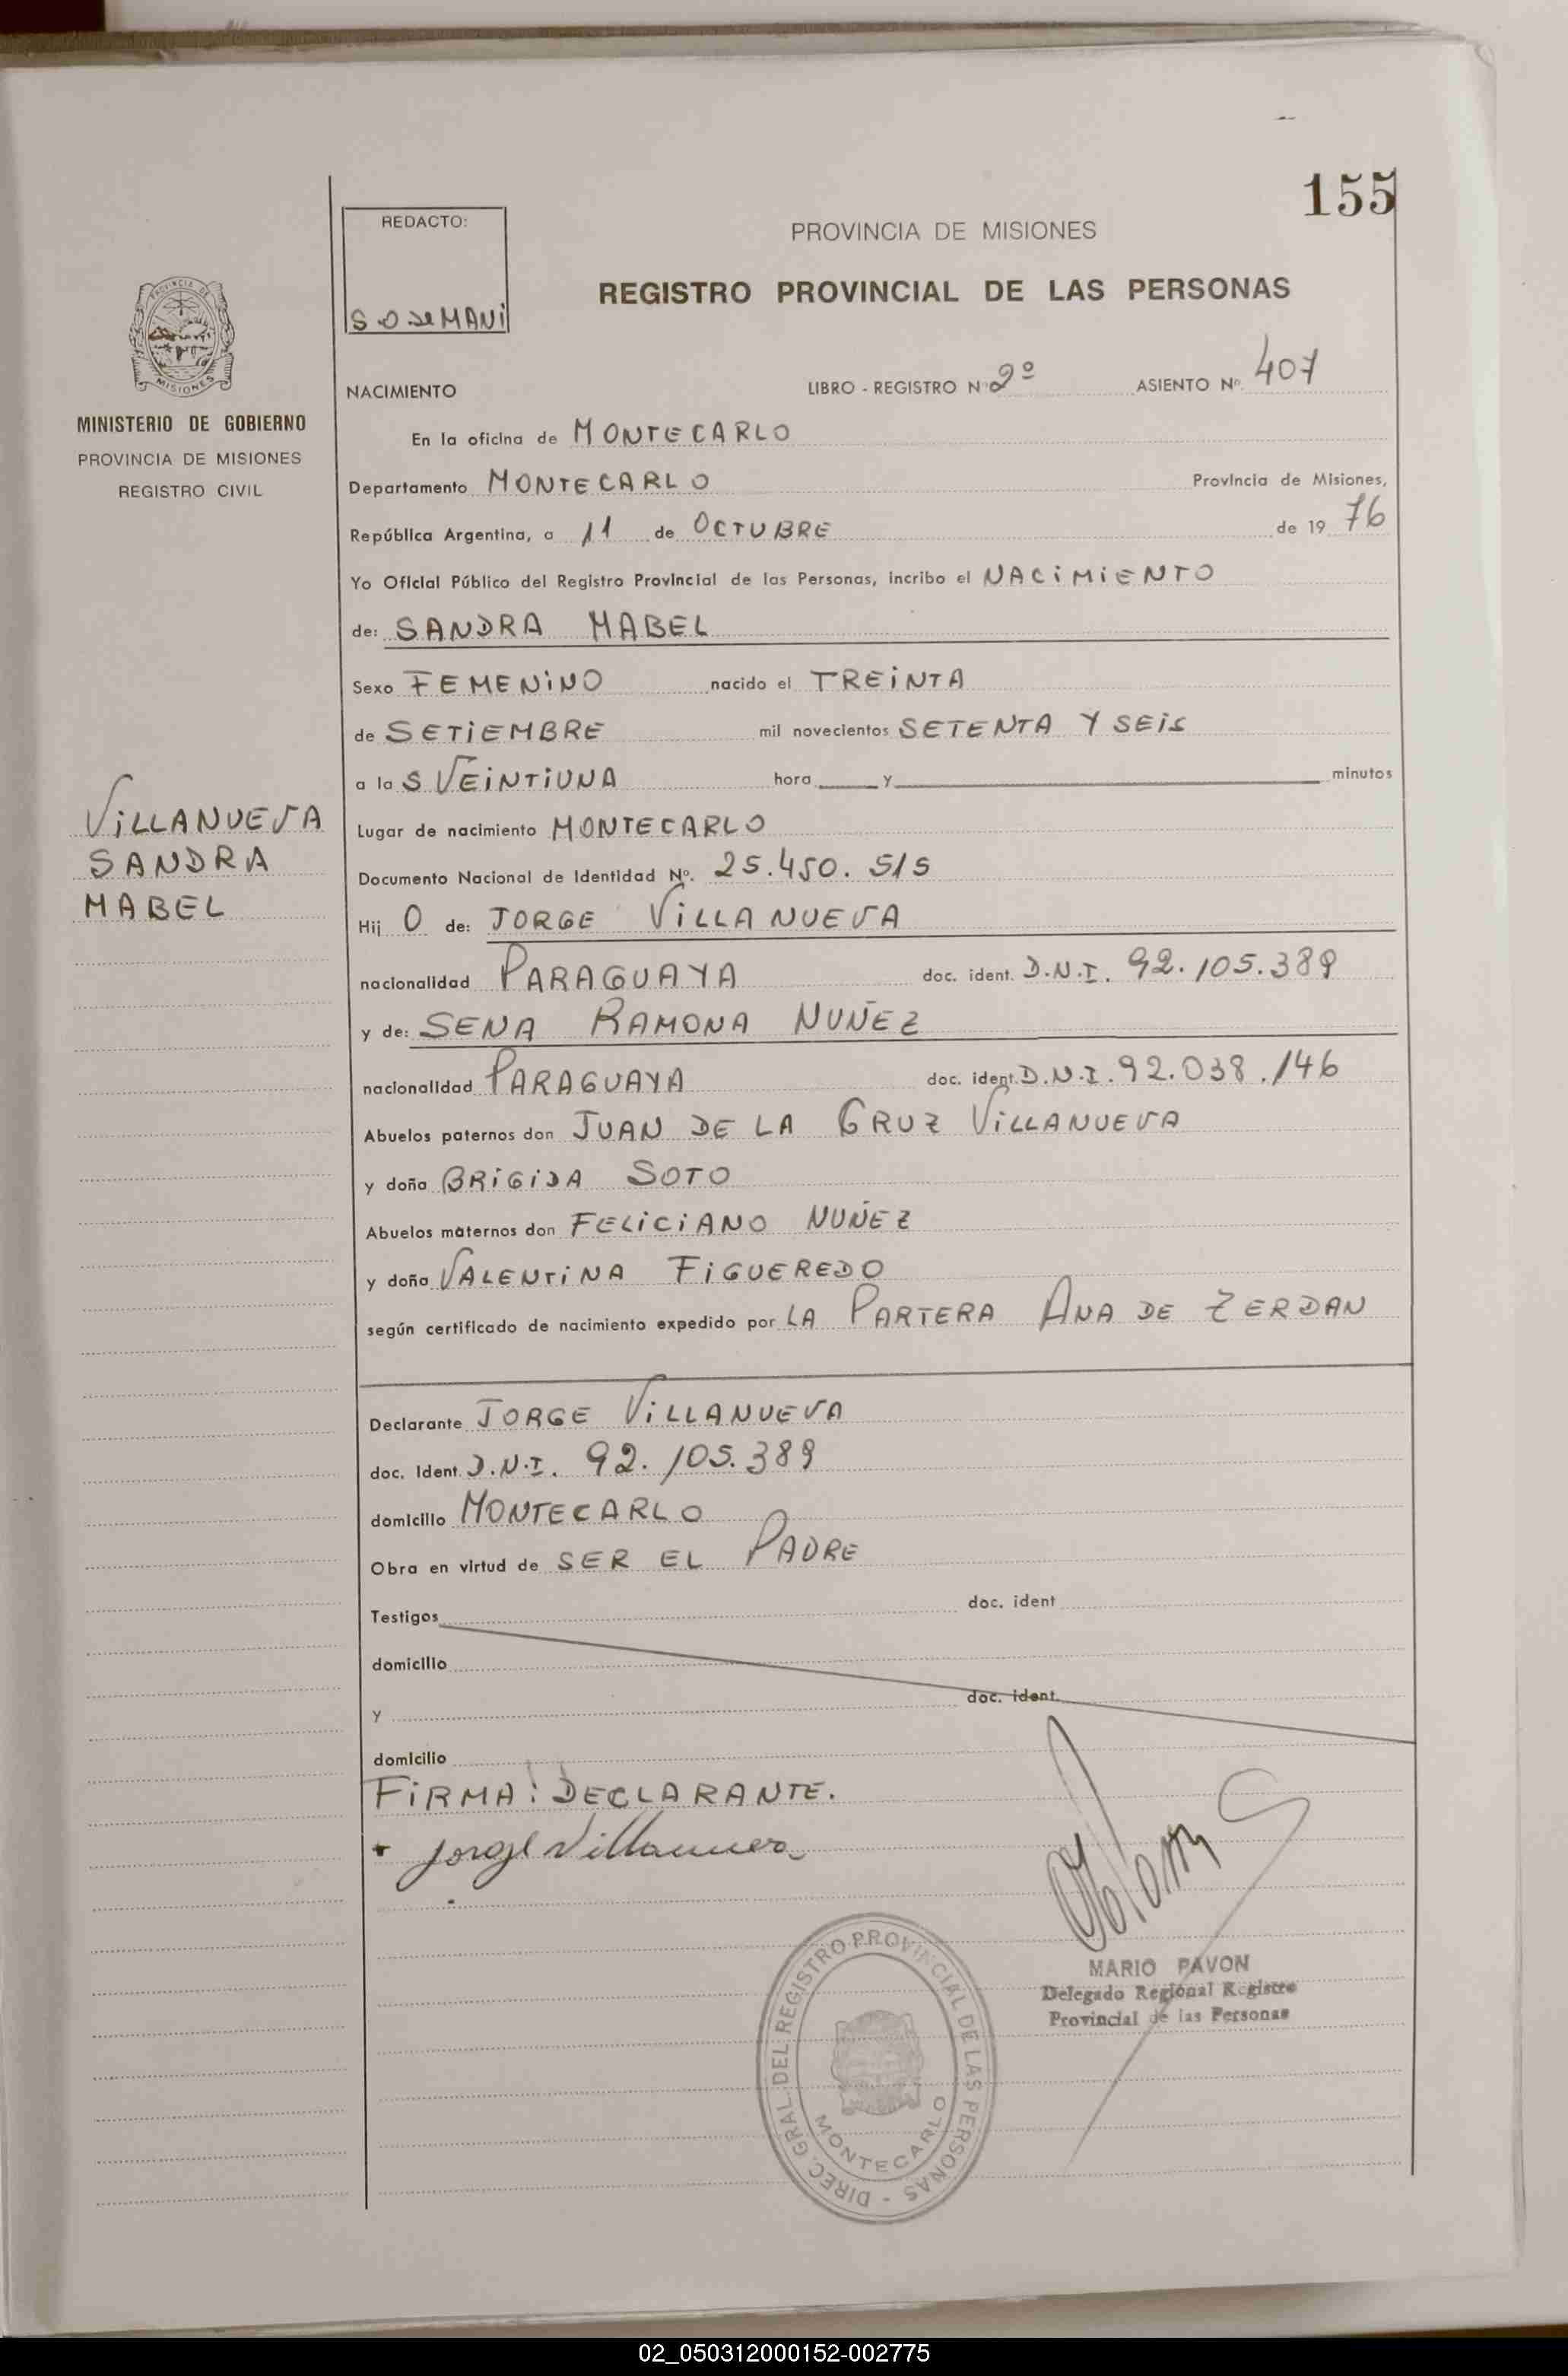 155
REDACTO:
PROVINCIA DE MISIONES
REGISTRO PROVINCIAL DE LAS PERSONAS
NACIMIENTO LIBRO - REGISTRO Nº 2º ASIENTO Nº 407
PROVINCIA DE MISIONES
MINISTERIO DE GOBIERNO
PROVINCIA DE MISIONES
REGISTRO CIVIL
En la oficina de MONTECARLO
Departamento MONTECARLO Provincia de Misiones,
República Argentina, a 11 de OCTUBRE de 19 76
Yo Oficial Público del Registro Provincial de las Personas, incribo el NACIMIENTO
de: SANDRA MABEL
Sexo FEMENINO nacido el TREINTA
de SETIEMBRE mil novecientos SETENTA Y SEIS
a la S VEINTIUNA hora y minutos
VILLANUEVA
SANDRA
MABEL
Lugar de nacimiento MONTECARLO
Documento Nacional de Identidad Nº. 25.450.515
Hij O de: JORGE VILLANUEVA
nacionalidad PARAGUAYA doc. ident. D.N.I. 92.105.389
y de: SENA RAMONA NUÑEZ
nacionalidad PARAGUAYA doc. ident. D.N.I. 92.038.146
Abuelos paternos don JUAN DE LA CRUZ VILLANUEVA
y doña BRIGIDA SOTO
Abuelos maternos don FELICIANO NUÑEZ
y doña VALENTINA FIGUEREDO
según certificado de nacimiento expedido por LA PARTERA ANA DE ZERDAN
Declarante JORGE VILLANUEVA
doc. Ident. D.N.I. 92.105.389
domicilio MONTECARLO
Obra en virtud de SER EL PADRE
Testigos doc. ident
domicilio
y doc. ident.
domicilio
FIRMA: DECLARANTE.
+ Jorge Villanueva
MARIO PAVON
Delegado Regional Registro
Provincial de las Personas
DIREC. GRAL. DEL REGISTRO PROVINCIAL DE LAS PERSONAS -
MONTECARLO
02_050312000152-002775